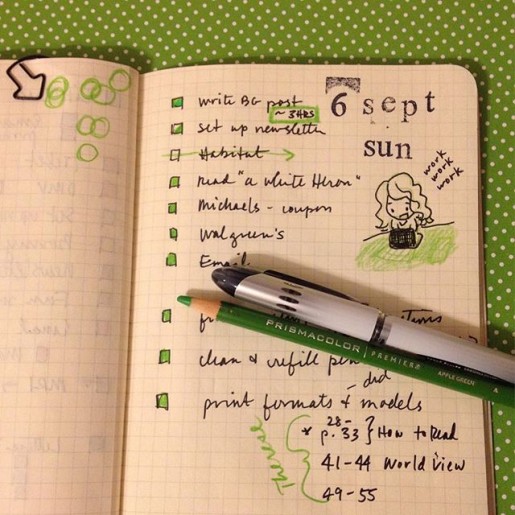 6 sept
sun
work
work
work
write BG post
~ 3HRS
set up newsletter
Habitat
read "a White Heron"
Michaels - coupon
Walgreen's
Email
items
PRISMACOLOR PREMIER
APPLE GREEN
clean & refill pen
- dad
print formats & models
* p. 28-33 } How to Read
41-44 World View
49-55